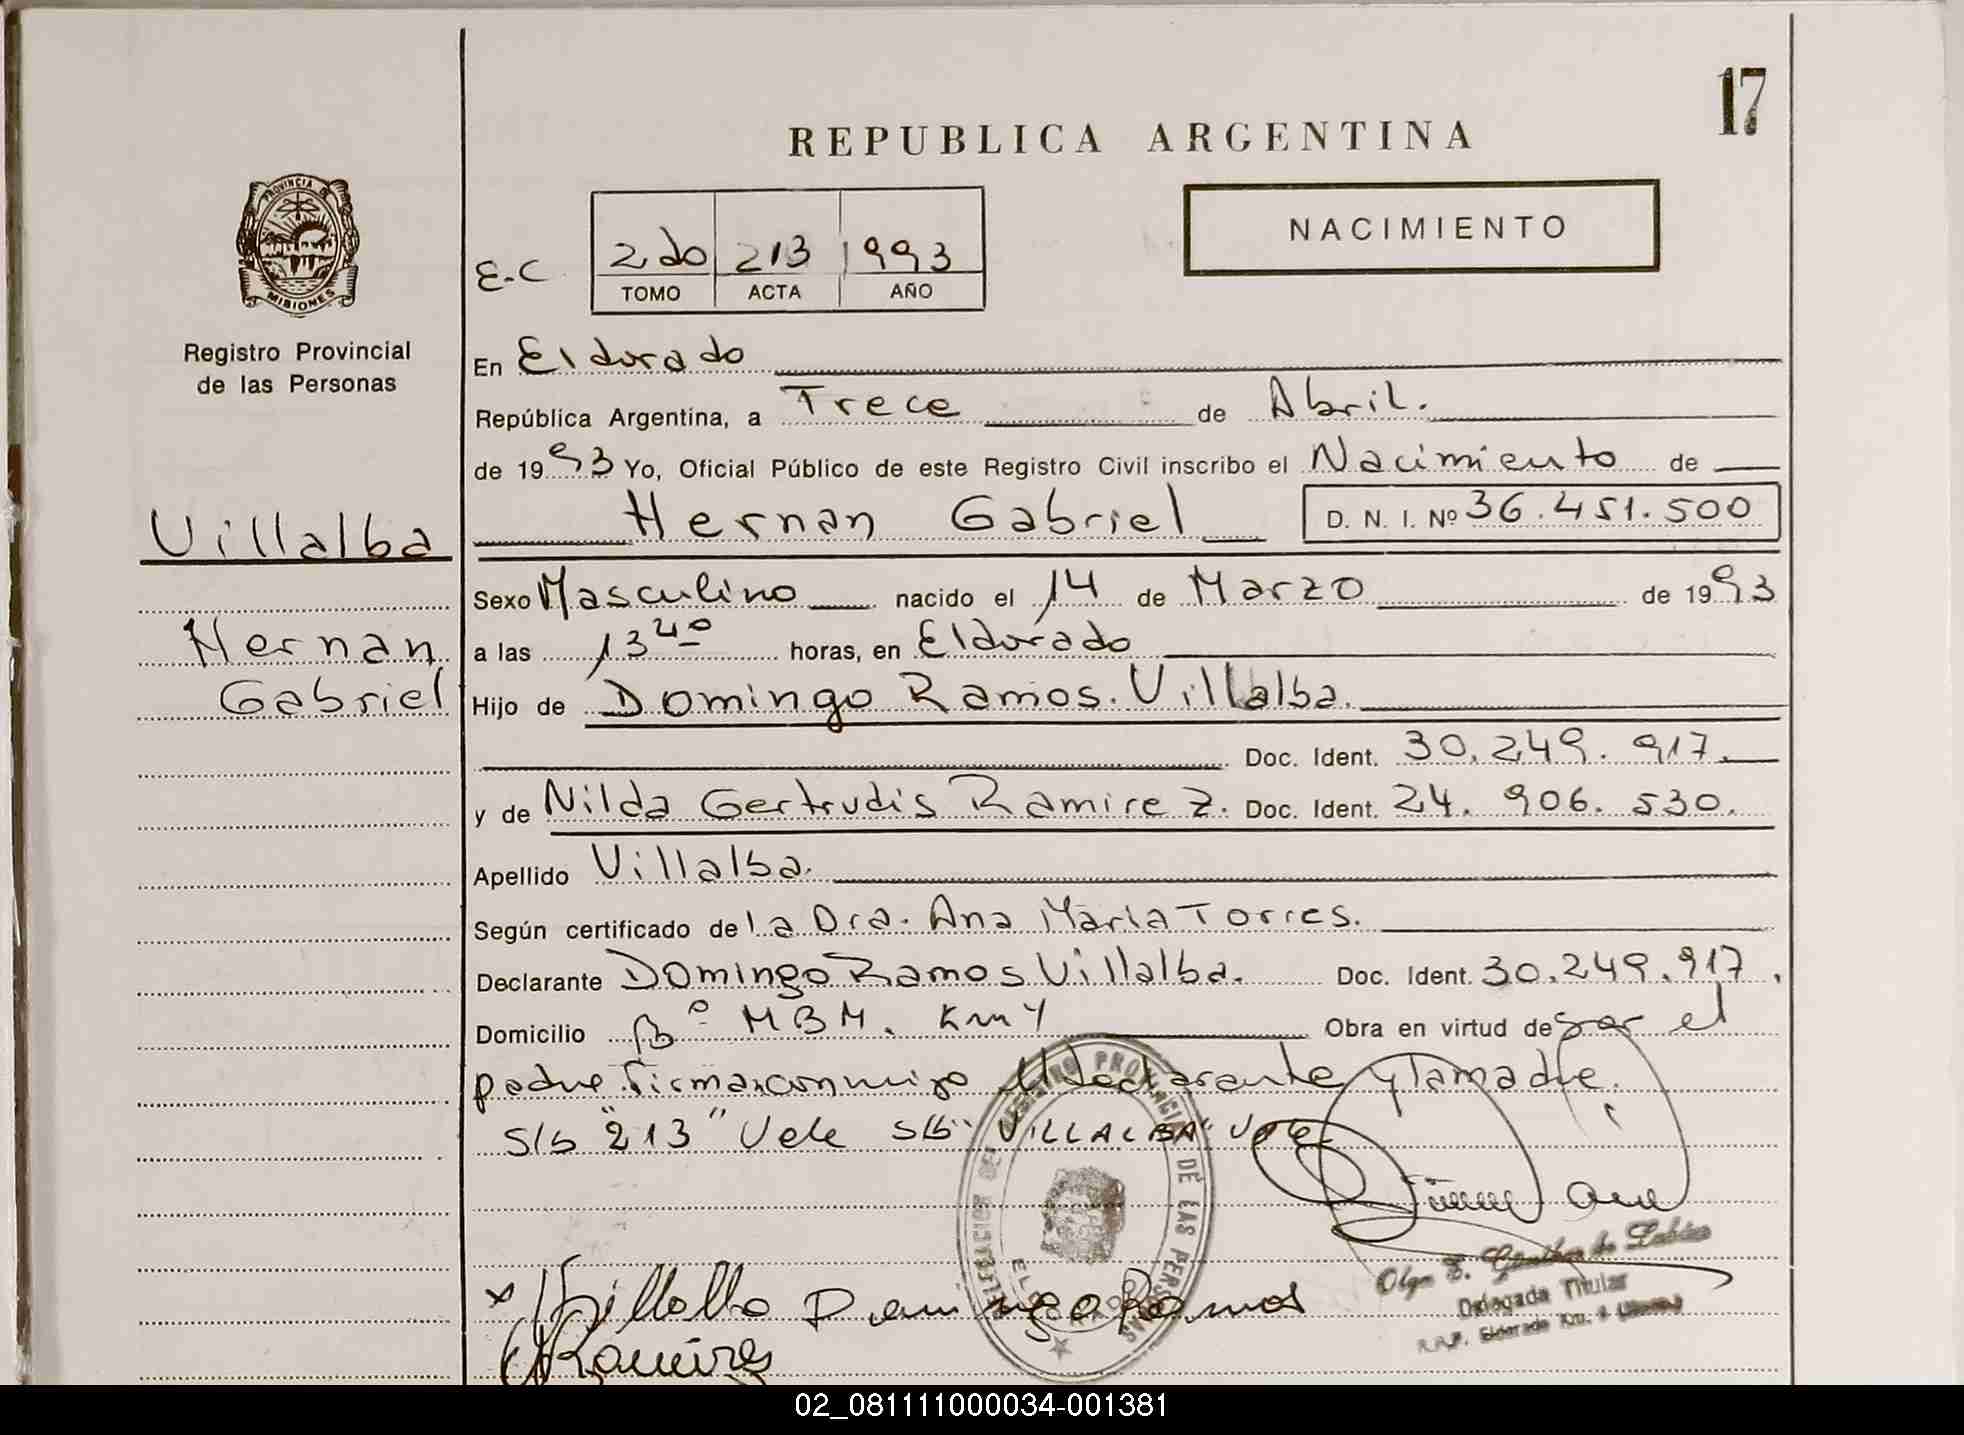 17
REPUBLICA ARGENTINA
NACIMIENTO
E.C 2do 213 1993
TOMO ACTA AÑO
PROVINCIA DE MISIONES
Registro Provincial
de las Personas
En Eldorado
República Argentina, a Trece de Abril.
de 1993 Yo, Oficial Público de este Registro Civil inscribo el Nacimiento de
Villalba
Hernan Gabriel D. N. I. Nº 36.451.500
Sexo Masculino nacido el 14 de Marzo de 1993
Hernan
Gabriel
a las 13 40 horas, en Eldorado
Hijo de Domingo Ramos. Villalba.
Doc. Ident. 30.249.917.
y de Nilda Gertrudis Ramirez. Doc. Ident. 24.906.530.
Apellido Villalba.
Según certificado de la Dra. Ana Maria Torres.
Declarante Domingo Ramos Villalba. Doc. Ident. 30.249.917.
Domicilio Bº MBM. Km 4 Obra en virtud de ser el
padre. Firman conmigo el declarante y la madre.
S/b "213" Vale S/b "VILLALBA" Vale
REGISTRO PROVINCIAL DE LAS PERSONAS
Villalba Domingo Ramos
Ramirez
Olga
Delegada Titular
R.P.P. Eldorado Km. 4
02_081111000034-001381